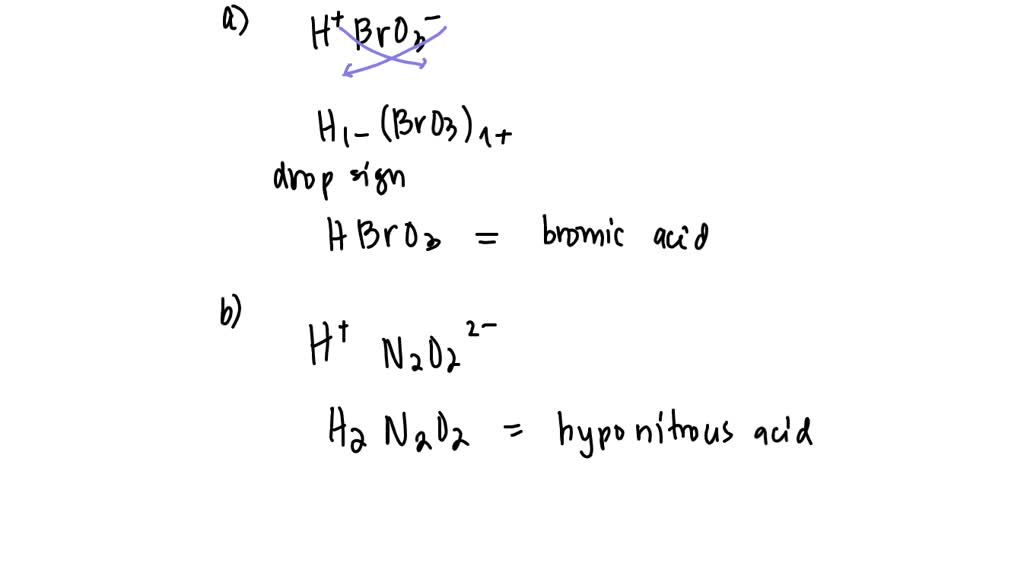 a) H⁺ BrO₃⁻
H₁₋ (BrO₃)₁₊
drop sign
HBrO₃ = bromic acid
b)
H⁺ N₂O₂²⁻
H₂ N₂O₂ = hyponitrous acid